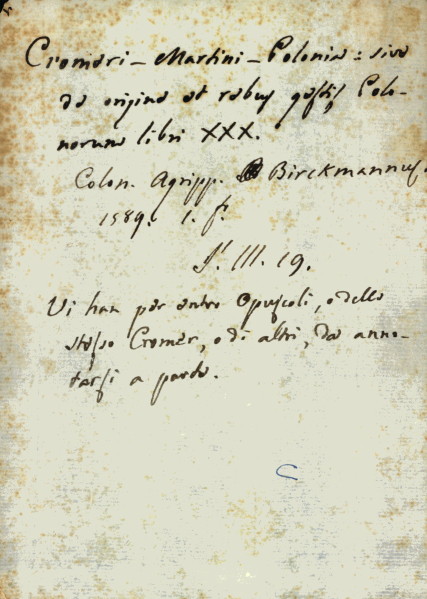 Cromeri - Martini - Polonia = sive
de origine et rebus gestis Polo-
norum libri XXX.
Colon. Agripp. Birckmannus.
1589. 1. f.
S. III. 19.
Vi han per entro Opuscoli, o dello
stesso Cromer, o di altri, da anno-
tarsi a parte.
C